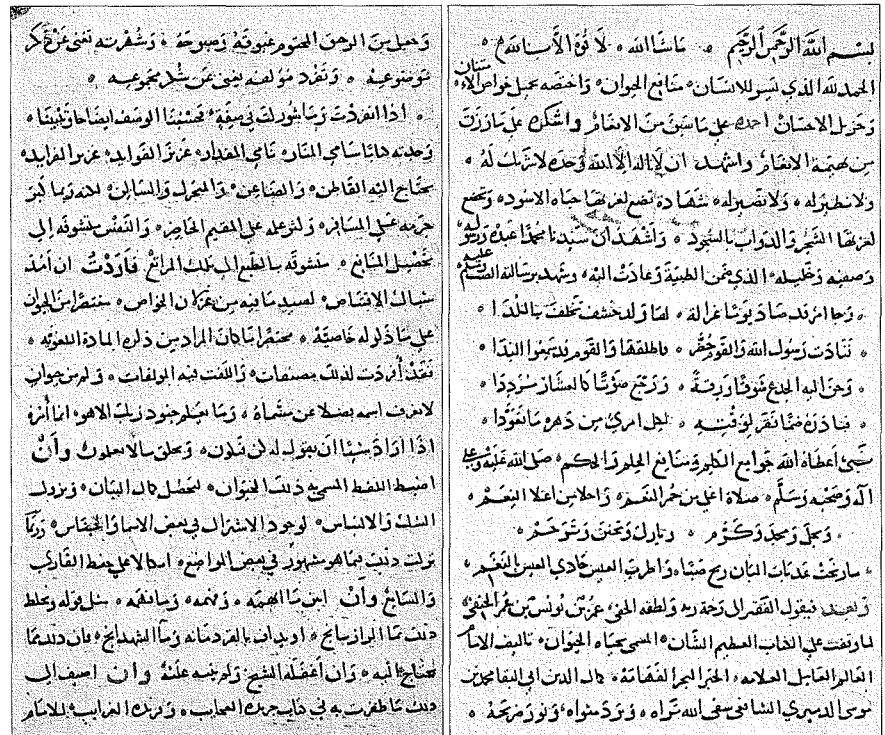 بسم الله الرحمن الرحيم ٥ ماشا الله ٥ لا قوة الا بالله ٥
الحمد لله الذي يسر للانسان ٥ منافع الحيوان ٥ واختصه بجميل خواص الالاء
وجزيل الاحسان احمده على ما سبغ من الانعام واشكره على ما رزق
من بهيمة الانعام واشهد ان لا اله الا الله وحده لا شريك له ٥
ولا نظير له ٥ ولا نصير له ٥ شهادة تضع لعزتها جباه الاسود ٥ وتخضع
لعزتها الشجر والدواب بالسجود ٥ واشهد ان سيدنا محمدا عبده ورسوله
وصفيه وخليله ٥ الذي الظبية وعاذت به ٥ وشهد برسالته
٥ وجا امرؤ قد صاد يوما غزالة ٥ لها ولد خشف تخلف بالكدا ٥
٥ فنادت رسول الله والقوم حضر ٥ فاطلقها والقوم قد سمعوا الندا ٥
٥ وحن اليه الجذع شوقا ورقة ٥ ورجع صوتا كالعشار مرددا ٥
٥ فبادره ضما فقر لوقته ٥ لكل امرئ من دهره ما تعودا ٥
نبي اعطاه الله جوامع الكلم ومنافع الحلم والحكم ٥ صلى الله عليه وعلى
آله وصحبه وسلم ٥ صلاة اغلى من حمر النعم ٥ واحلا من اعلا النعم ٥
٥ وبجل ومجد وكرم ٥ وبارك وتحنن وترحم ٥
٥ ما رنحت عذبات البان ريح صبا ٥ واطرب العيس حادي العيس بالنغم ٥
وبعد فيقول الفقير الى رحمة ربه ولطفه الخفي ٥ عمر بن يونس بن عمر الحنفي ٥
لما وقفت على الكتاب العظيم الشان ٥ المسمى بحياة الحيوان ٥ تاليف الامام
العالم العامل العلامه ٥ الحبر البحر الفهامه ٥ كمال الدين ابي البقا محمد بن
موسى الدميري الشافعي سقى الله ثراه ٥ وبرد مثواه ٥ ونور ضريحه ٥
وجعل من الرحيق المختوم غبوقه وصبوحه ٥
موضوعه ٥ وتفرد مؤلفه يغني عن شكر مجموعه ٥
٥ اذا انفردت وما شوركت في صفة ٥ فحسبنا الوصف ايضاحا وتبيينا ٥
وجدته كتابا سامي المنار ٥ نامي المقدار ٥ عزيز الفوايد ٥ غزير الفرايد ٥
يحتاج اليه القاطن ٥ والظاعن ٥ والمتحرك والساكن ٥ لانه ربما كبر
جرمه على المسافر ٥ وحمله على المقيم الحاضر ٥ والنفس متشوقه الى
تحصيل المنافع ٥ متشوقه بالطبع الى تلك المراتع فاردت ان امد
شباك الاقتناص ٥ لصيد ما فيه من الخواص ٥ مقتصرا من الحيوان
على ما ذكر له خاصية ٥
فقد افردت لذلك مصنفات ٥ والفت فيه المولفات ٥ وكم من حيوان
لا نعرف اسمه فضلا عن مسماه ٥ وما يعلم جنود ربك الا هو ٥ انما امره
اذا اراد شيئا ان يقول له كن فيكون ٥ ويخلق ما لا تعلمون وان
اضبط اللفظ المسمى به ذلك الحيوان ٥ ليحصل كمال البيان ٥ ويزول
الشك والالتباس ٥ لوجود الاشتراك في بعض الاسما والاجناس ٥ وربما
تركت ذلك فيما هو مشهور في بعض المواضع ٥ اتكالا على حفظ القارئ
والسامع وان ابين ما اهمله ٥
يحتاج اليه ٥ وان اغفله الشيخ ولم ينبه عليه وان اضيف الى
ذلك ما ظفرت به في كتاب خريدة العجايب ٥ وفريدة الغرايب ٥ للامام